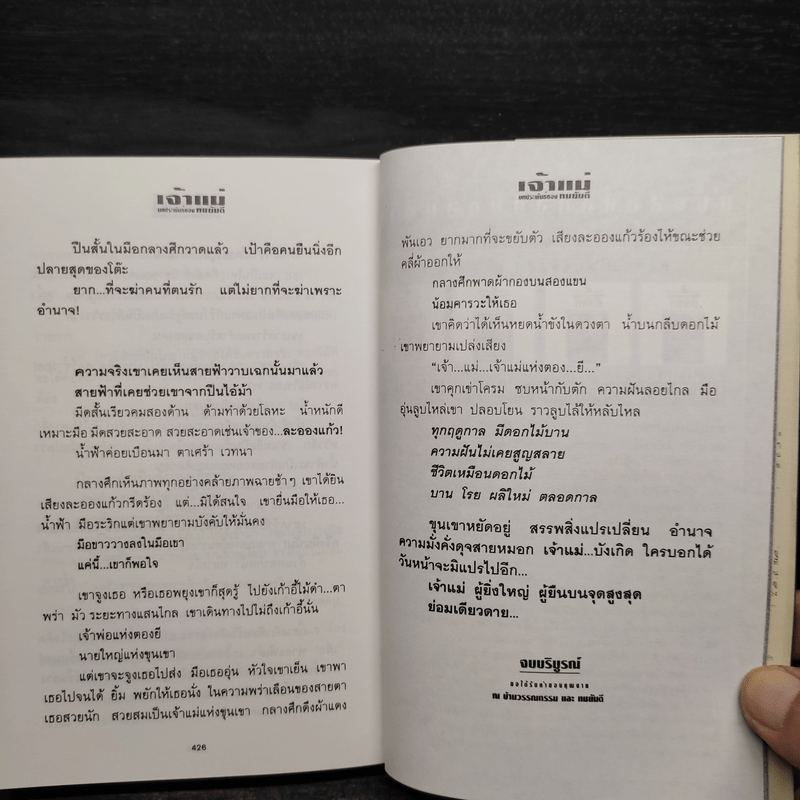 เจ้าแม่
บทประพันธ์ของ ทมยันตี
ปืนสั้นในมือกลางศึกวาดแล้ว เป้าคือคนยืนนิ่งอีก
ปลายสุดของโต๊ะ
ยาก...ที่จะฆ่าคนที่ตนรัก แต่ไม่ยากที่จะฆ่าเพราะ
อำนาจ!
ความจริงเขาเคยเห็นสายฟ้าวาบเฉกนั้นมาแล้ว
สายฟ้าที่เคยช่วยเขาจากปืนไอ้ม้า
มีดสั้นเรียวคมสองด้าน ด้ามทำด้วยโลหะ น้ำหนักดี
เหมาะมือ มีดสวยสะอาด สวยสะอาดเช่นเจ้าของ...ละอองแก้ว!
น้ำฟ้าค่อยเบือนมา ตาเศร้า เวทนา
กลางศึกเห็นภาพทุกอย่างคล้ายภาพฉายช้าๆ เขาได้ยิน
เสียงละอองแก้วกรีดร้อง แต่...มิได้สนใจ เขายื่นมือให้เธอ...
น้ำฟ้า มือระริกแต่เขาพยายามบังคับให้มั่นคง
มือขาววางลงในมือเขา
แค่นี้...เขาก็พอใจ
เขาจูงเธอ หรือเธอพยุงเขาก็สุดรู้ ไปยังเก้าอี้ไม้ดำ...ตา
พร่า มัว ระยะทางแสนไกล เขาเดินทางไปไม่ถึงเก้าอี้นั่น
เจ้าพ่อแห่งตองยี
นายใหญ่แห่งขุนเขา
แต่เขาจะจูงเธอไปส่ง มือเธออุ่น หัวใจเขาเย็น เขาพา
เธอไปจนได้ ยิ้ม พยักให้เธอนั่ง ในความพร่าเลือนของสายตา
เธอสวยนัก สวยสมเป็นเจ้าแม่แห่งขุนเขา กลางศึกดึงผ้าแดง
426
เจ้าแม่
บทประพันธ์ของ ทมยันตี
พันเอว ยากมากที่จะขยับตัว เสียงละอองแก้วร้องไห้ขณะช่วย
คลี่ผ้าออกให้
กลางศึกพาดผ้ากองบนสองแขน
น้อมคารวะให้เธอ
เขาคิดว่าได้เห็นหยดน้ำขังในดวงตา น้ำบนกลีบดอกไม้
เขาพยายามเปล่งเสียง
“เจ้า...แม่...เจ้าแม่แห่งตอง...ยี...”
เขาคุกเข่าโครม ซบหน้ากับตัก ความฝันลอยไกล มือ
อุ่นลูบไหล่เขา ปลอบโยน ราวลูบไล้ให้หลับไหล
ทุกฤดูกาล มีดอกไม้บาน
ความฝันไม่เคยสูญสลาย
ชีวิตเหมือนดอกไม้
บาน โรย ผลิใหม่ ตลอดกาล
ขุนเขาหยัดอยู่ สรรพสิ่งแปรเปลี่ยน อำนาจ
ความมั่งคั่งดุจสายหมอก เจ้าแม่...บังเกิด ใครบอกได้
วันหน้าจะมิแปรไปอีก...
เจ้าแม่ ผู้ยิ่งใหญ่ ผู้ยืนบนจุดสูงสุด
ย่อมเดียวดาย...
จบบริบูรณ์
ขอได้รับคำขอบคุณจาก
ณ บ้านวรรณกรรม และ ทมยันตี